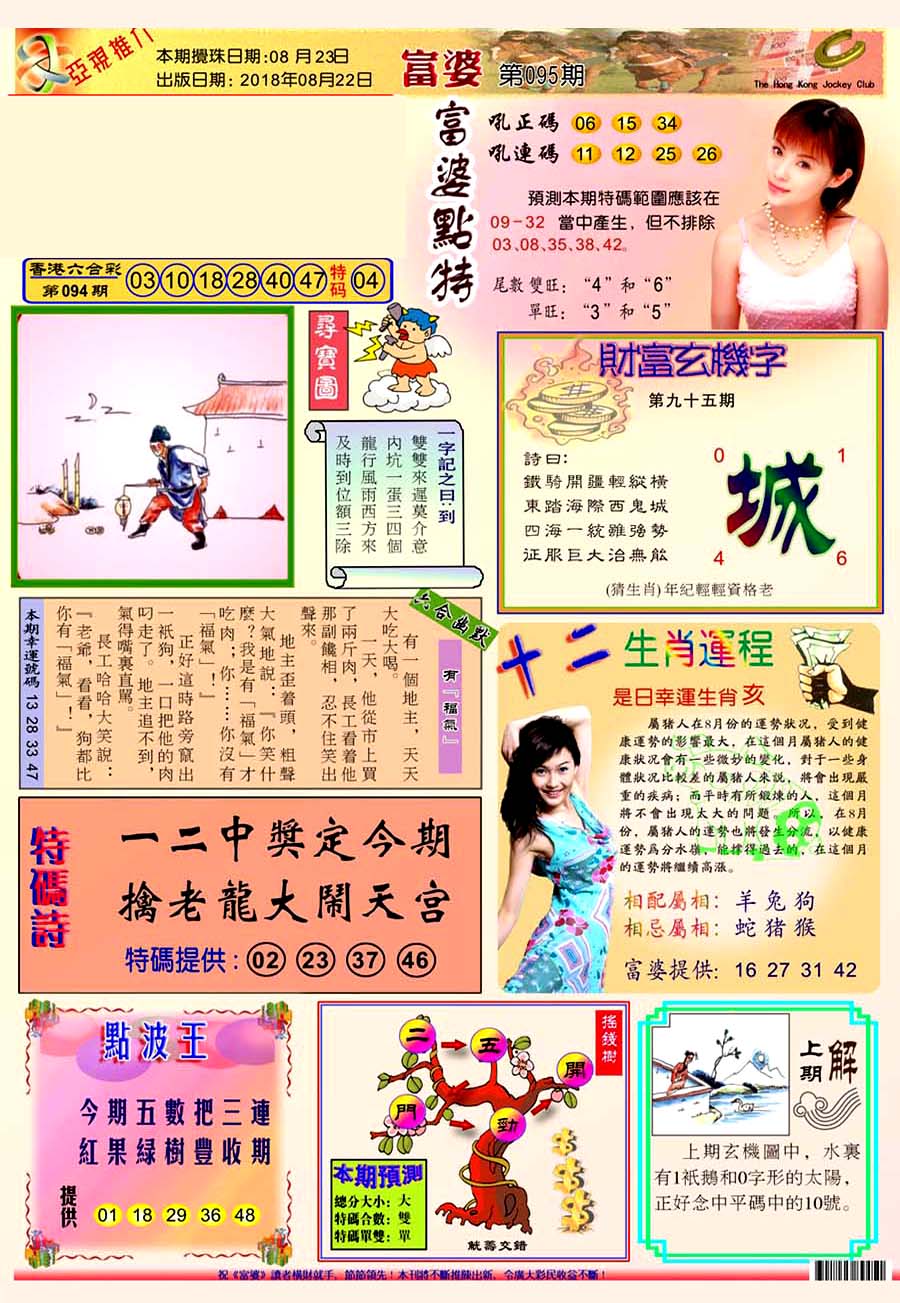 亞視推介
本期攪珠日期:08 月 23日
出版日期: 2018年08月22日
富婆 第095期
The Hong Kong Jockey Club
富婆點特
吼正碼 06 15 34
吼連碼 11 12 25 26
預測本期特碼範圍應該在
09－32 當中產生，但不排除
03、08、35、38、42。
尾數雙旺：“4”和“6”
單旺：“3”和“5”
香港六合彩
第094期
03 10 18 28 40 47 特码 04
尋寶圖
一字記之曰：到
雙雙來遲莫介意
內坑一蛋三四個
龍行風雨西方來
及時到位額三除
財富玄機字
第九十五期
詩曰:
鐵騎開疆輕縱橫
東踏海際西鬼城
四海一統雖強勢
征服巨大治無能
0 1
城
4 6
(猜生肖)年紀輕輕資格老
六合幽默
有「福氣」
有一個地主，天天
大吃大喝。
一天，他從市上買
了兩斤肉，長工看着他
那副饞相，忍不住笑出
聲來。
地主歪着頭，粗聲
大氣地說：『你笑什
麼？我是有「福氣」才
吃肉；你……你沒有
「福氣」！』
正好這時路旁竄出
一衹狗，一口把他的肉
叼走了。地主追不到，
氣得嘴裏直罵。
長工哈哈大笑說：
『老爺，看看，狗都比
你有「福氣」！』
本期幸運號碼 13 28 33 47
十二生肖運程
是日幸運生肖 亥
屬猪人在8月份的運勢狀况，受到健
康運勢的影響最大，在這個月屬猪人的健
康狀况會有一些微妙的變化，對于一些身
體狀况比較差的屬猪人來說，將會出現嚴
重的疾病；而平時有所鍛煉的人，這個月
將不會出現太大的問題。所以，在8月
份，屬猪人的運勢也將發生分流，以健康
運勢爲分水嶺，能撐得過去的，在這個月
的運勢將繼續高漲。
相配屬相：羊 兔 狗
相忌屬相：蛇 猪 猴
富婆提供：16 27 31 42
特碼詩
一二中獎定今期
擒老龍大鬧天宫
特碼提供：02 23 37 46
點波王
今期五數把三連
紅果緑樹豐收期
提供 01 18 29 36 48
搖錢樹
二 五 開
門 勁
本期預測
總分大小：大
特碼合數：雙
特碼單雙：單
觥壽交錯
上期解
上期玄機圖中，水裏
有1衹鵝和0字形的太陽，
正好念中平碼中的10號。
祝《富婆》讀者橫財就手，節節領先！本刊將不斷推陳出新，令廣大彩民收益不斷！